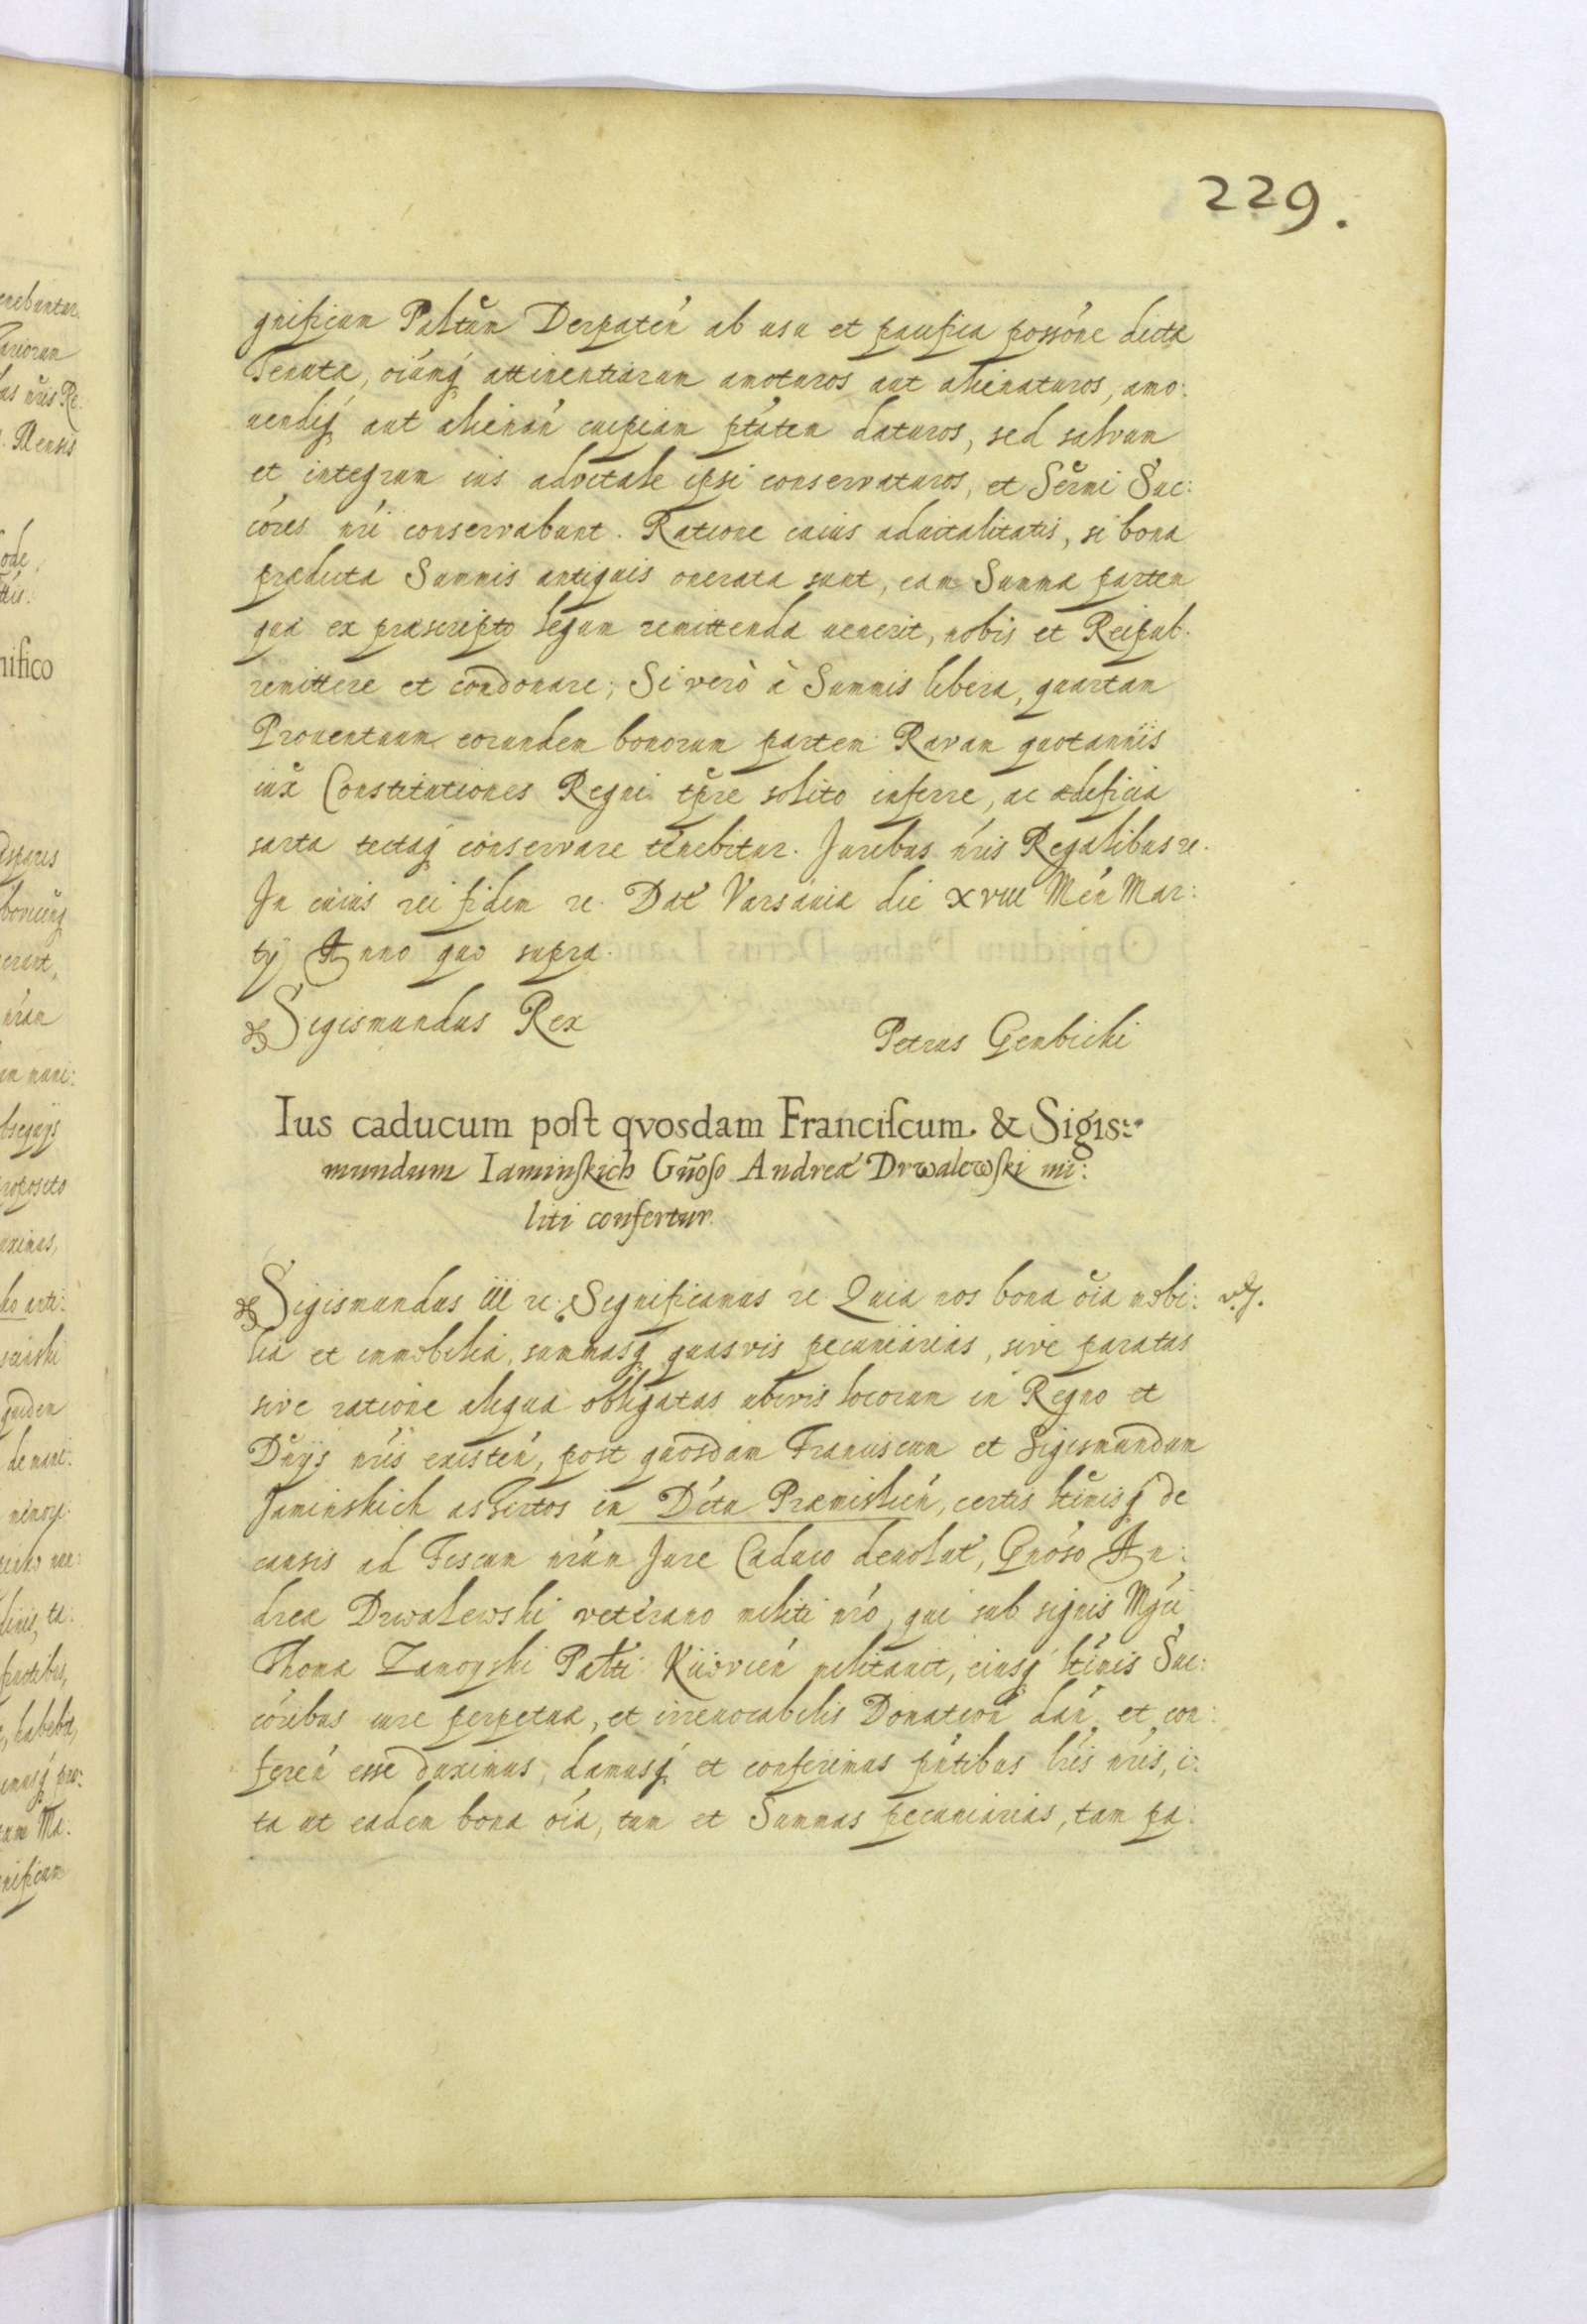 229.
gnificum Paltũm Derpatén ab usu et pacifica possóne dictæ
Tenutæ, oíumq́ attinentiarum amoturos aut alienaturos, amo:
uendiq́ aut alienáń cuipiam ptátem daturos, sed salvum
et integrum ius advitale ipsi conservaturos, et Sermi Suc:
córes nrí conservabunt. Ratione cuius aduitalitatis, si bona
prædicta Summis antiquis onerata sunt, eam Summæ partem
quæ ex præscripto legum remittenda uenerit, nobis et Reipub:
remittere et condonare; Si verò à Summis libera, quartam
Prouentuum eorundem bonorum partem Ravam quotannis
iuxᵃ Constitutiones Regni tpre solito inferre, ac ædificia
sarta tectaq́ conservare tenebitur. Juribus nrís Regalibus etc.
In cuius rei fidem etc. Dat́ Varsaviæ die XVIII Mén Mar:
tÿ Anno quo supra.
Sigismundus Rex
Petrus Gembicki
Ius caducum post qvosdam Franciscum. & Sigis:
mundum Iaminskich Gñoso Andreæ Drwalewski mi:
liti confertur.
Sigismundus III etc: Significamus etc Quia nos bona oía mobi:
lia et immobilia, summasq́ quasvis pecuniarias, sive paratas
sive ratione aliqua obligatas ubivis locorum in Regno et
Dnÿs nrís existéń, post quosdam Franciscum et Sigismundum
Jaminskich assertos in Dictu Præmisliéń, certis ltímisq́ de
causis ad Fiscum nrúm Jure Caduco devolut́, Gnóso An:
dreæ Drwalewski veterano militi nró, qui sub signis Mgci
Thomæ Zamoyski Palti Kiioviéń militavit, eiusq́ ltímis Suc:
córibus iure perpetuæ, et irrevocabilis Donation dáń et con:
feréń esse duximus, damusq́ et conferimus pntibus lrís nrís, i:
ta ut eadem bona oía, tum et Summas pecuniarias, tam pa: